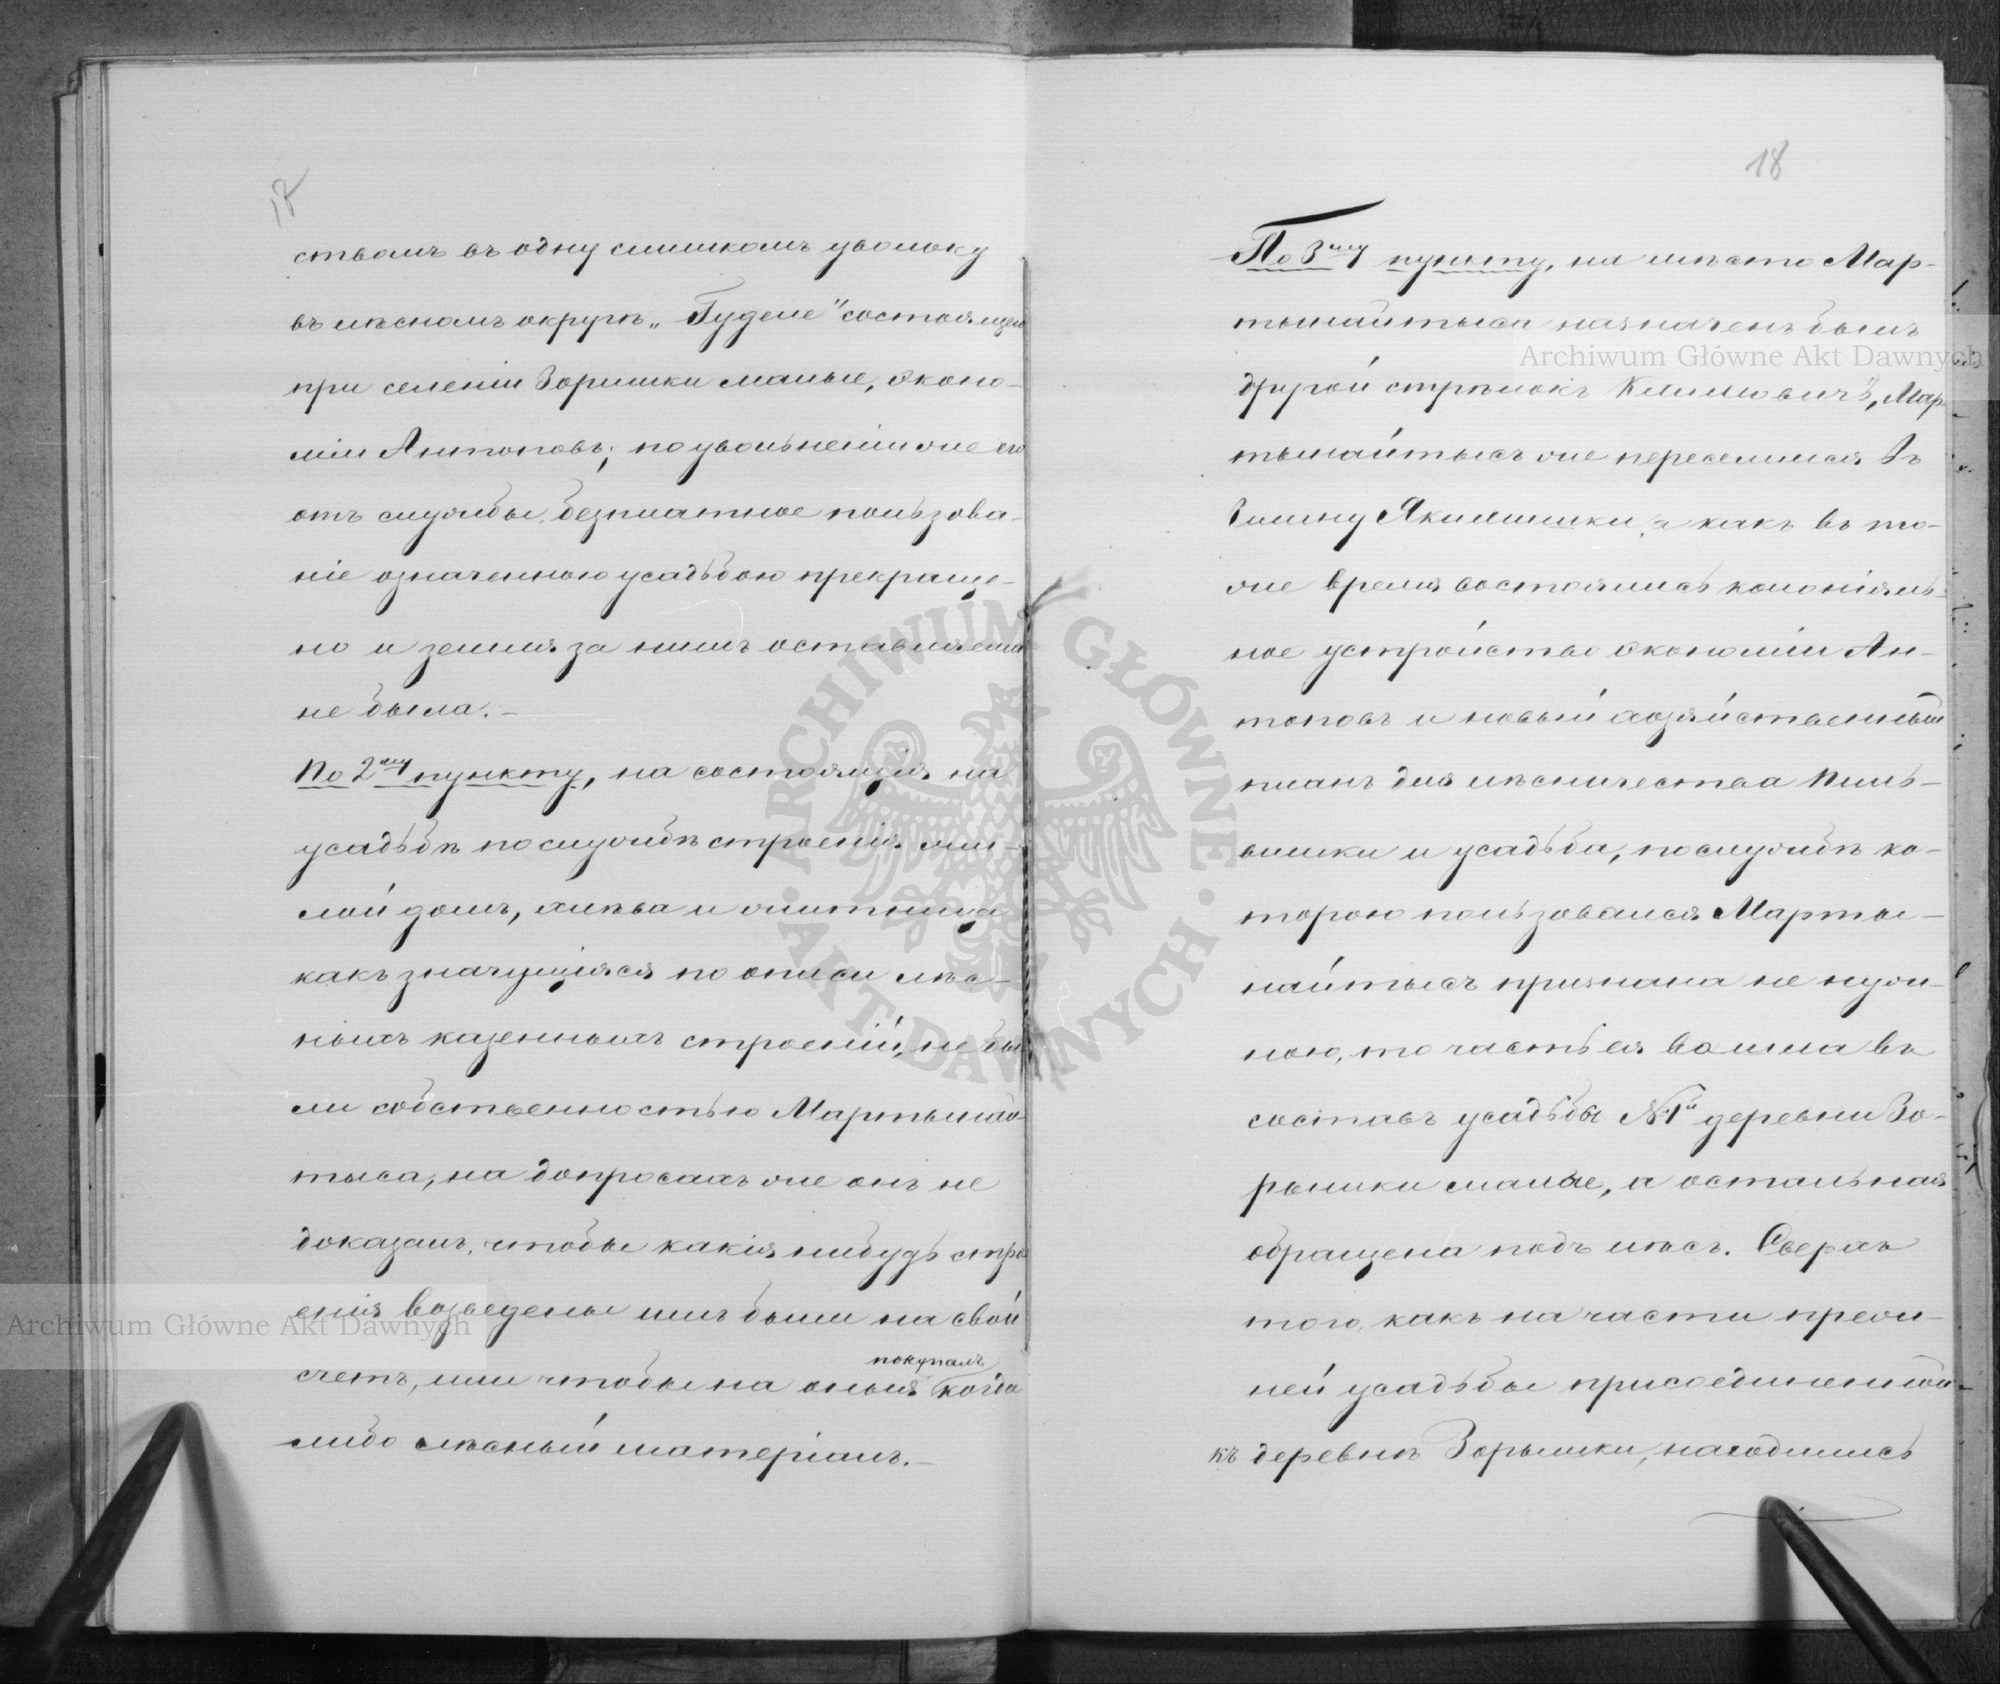 17
ствомъ въ одну слишкомъ уволоку
въ лѣсномъ округѣ „Гуделе" состоящею
при селеніи Зоришки малые, эконо-
міи Антоновъ; по увольненіи же его
отъ службы, безплатное пользова-
ніе означенною усадьбою прекраще-
но и земля за нимъ оставляема
не была.-
По 2му пункту, на состоящія на
усадьбѣ по службѣ строенія жи-
лой домъ, хлѣва и житница
какъ значущіяся по описи лѣс-
ныхъ казенныхъ строеній, не бы
ли собственностью Мартынай-
тыса, на допросахъ же онъ не
доказалъ, чтобы какія нибудь стро
енія возведены имъ были на свой
покупалъ
счетъ, или чтобы на оныя когда
либо лѣсный матеріалъ.-
18
По 3му пункту, на мѣсто Мар-
тынайтыса назначенъ былъ
другой стрѣлокъ Климовичъ, Мар-
тынайтысъ же переселился въ
гмину Якимишки, а какъ въ то-
же время состоялись колоніяль-
ное устройство экономіи Ан-
тоновъ и новый хозяйственный
планъ для лѣсничества Пиль-
вишки и усадьба, по службѣ ко-
торою пользовался Марты-
найтысъ признана не нуж-
ною, то часть ея вошла въ
составъ усадьбы №1й деревни Зо-
рышки малые, а остальная
обращена подъ лѣсъ. Сверхъ
того, какъ на части преж-
ней усадьбы присоединенной
къ деревнѣ Зорышки, находились
Archiwum Główne Akt Dawnych
Archiwum Główne Akt Dawnych
ARCHIWUM GŁÓWNE · AKT DAWNYCH ·